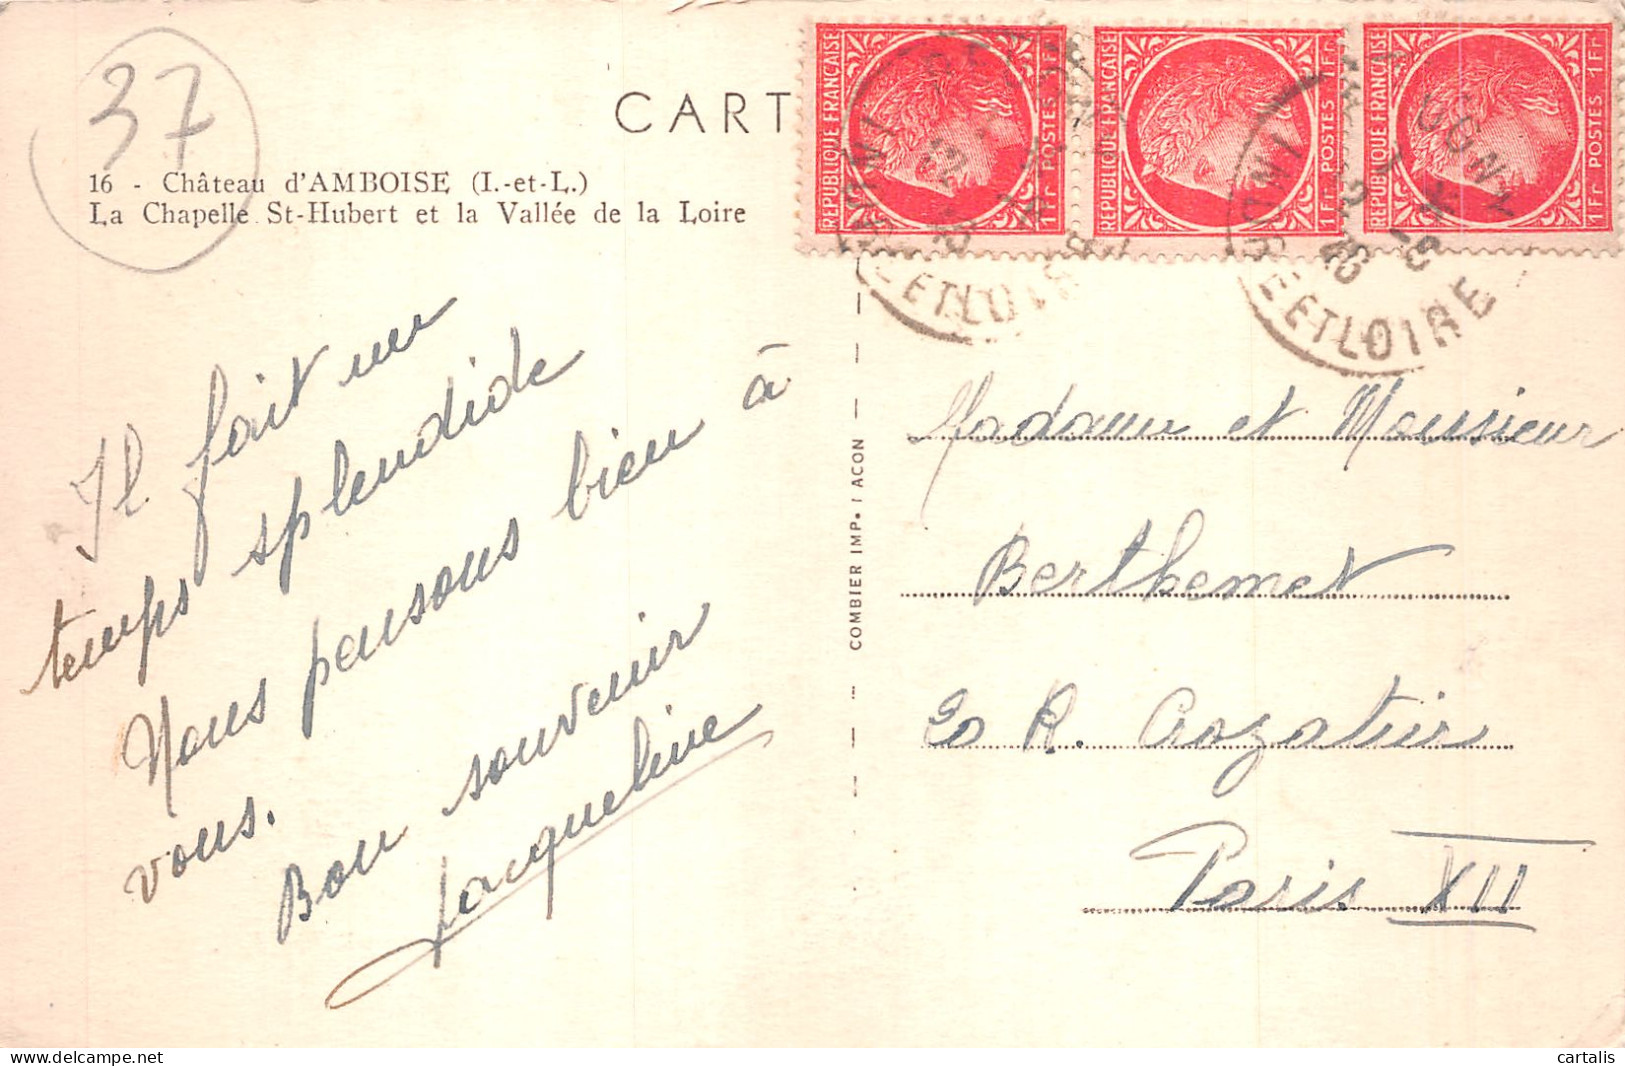 37
CART
16 - Château d'AMBOISE (I.-et-L.)
La Chapelle St-Hubert et la Vallée de la Loire
REPUBLIQUE FRANÇAISE
POSTES 1Fr
REPUBLIQUE FRANÇAISE
1Fr POSTES 1Fr
REPUBLIQUE FRANÇAISE
1Fr POSTES 1Fr
ET LOIRE
INDRE ET LOIRE
Il fait un
temps splendide
Nous pensons bien à
vous.
Bon souvenir
Jacqueline
COMBIER IMP. MACON
Madame et Monsieur
Berthemet
R. Crozatier
Paris XII
cartalis